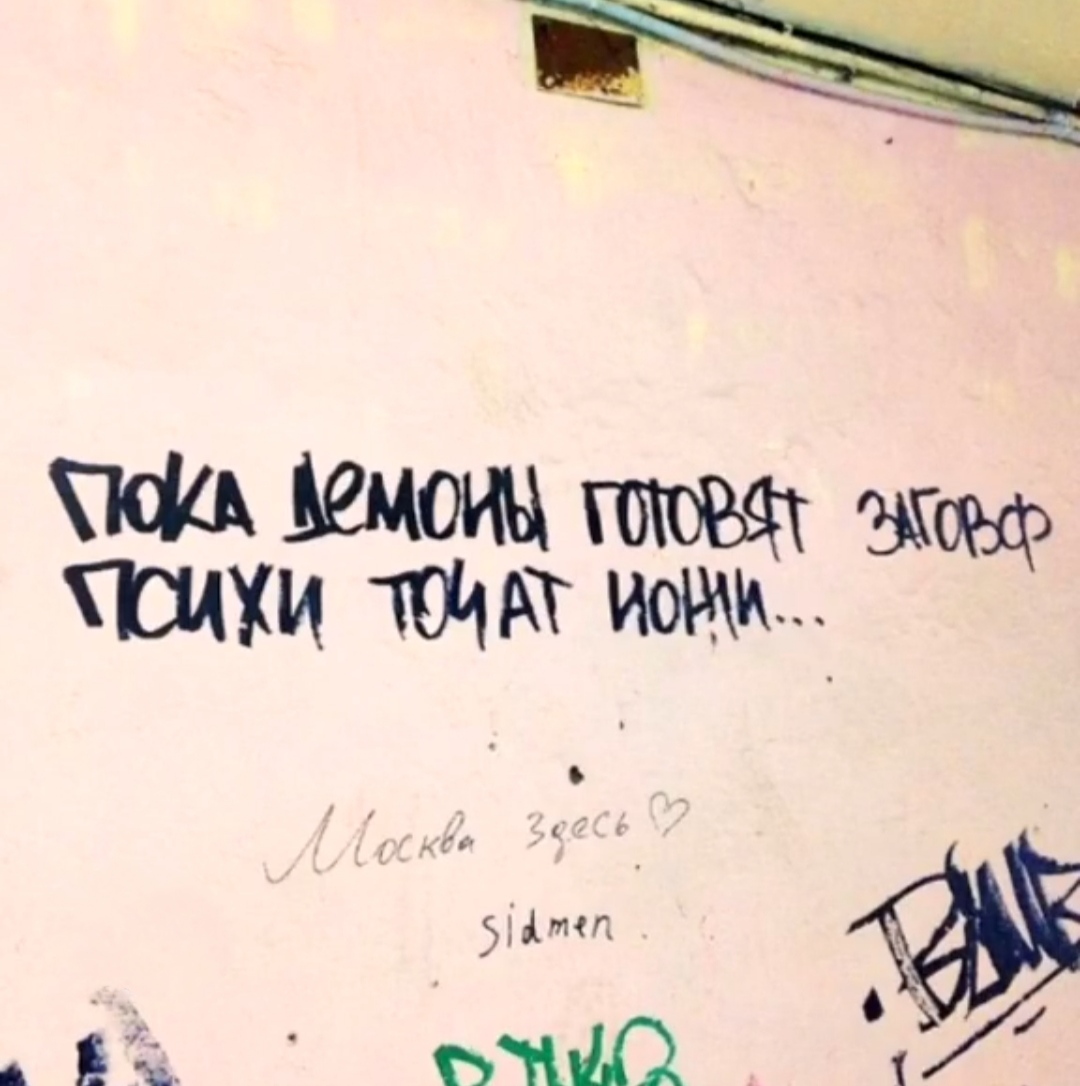 ПОКА ДЕМОНЫ ГОТОВЯТ ЗАГОВОР
ПСИХИ ТОЧАТ НОЖИ...
Москва здесь ♡
sidmen